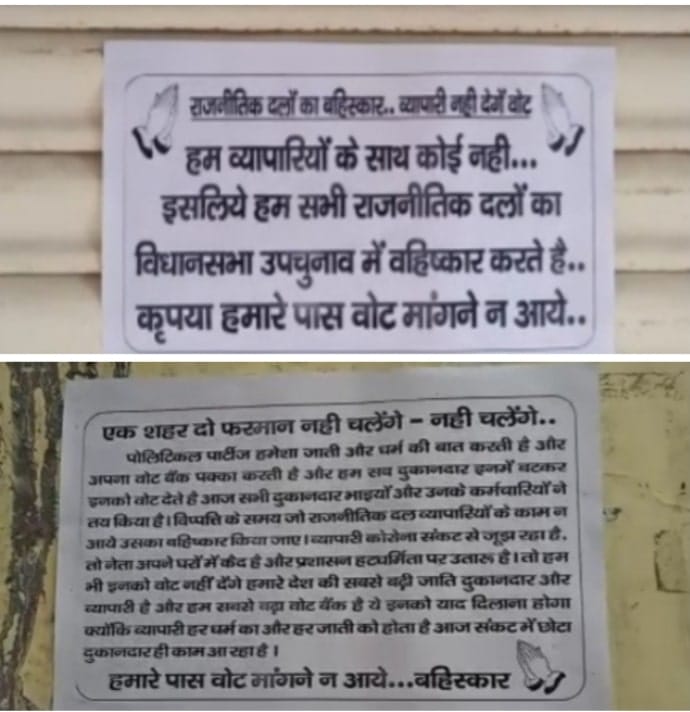 राजनीतिक दलों का बहिस्कार.. व्यापारी नही देगें वोट
हम व्यापारियों के साथ कोई नही...
इसलिये हम सभी राजनीतिक दलों का
विधानसभा उपचुनाव में वहिष्कार करते है..
कृपया हमारे पास वोट मांगने न आये..
एक शहर दो फरमान नही चलेंगे – नही चलेंगे..
पोलिटिकल पार्टीज हमेशा जाती और धर्म की बात करती है और
अपना वोट बैंक पक्का करती है और हम सब दुकानदार इनमें बटकर
इनको वोट देते है आज सभी दुकानदार भाइयों और उनके कर्मचारियों ने
तय किया है। विप्पत्ति के समय जो राजनीतिक दल व्यापारियों के काम न
आये उसका बहिष्कार किया जाए। व्यापारी कोरोना संकट से जूझ रहा है.
तो नेता अपने घरों में कैद है और प्रशासन हटधर्मिता पर उतारू है। तो हम
भी इनको वोट नहीं देंगे हमारे देश की सबसे बढ़ी जाति दुकानदार और
व्यापारी है और हम सबसे बढ़ा वोट बैंक है ये इनको याद दिलाना होगा
क्योंकि व्यापारी हर धर्म का और हर जाती को होता है आज संकट में छोटा
दुकानदार ही काम आ रहा है।
हमारे पास वोट मांगने न आये...बहिस्कार